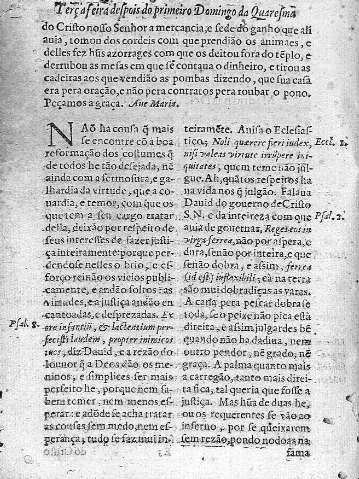 Terça feira despois do primeiro Domingo da Quaresma
do Cristo nosso Senhor a mercancia, e sede do ganho que ali
auia, tomou dos cordeis com que prendião os animaes, e
delles fez hũs azorrages com que os deitou fora do tẽplo, e
derrubou as mesas em que se contaua o dinheiro, e tirou as
cadeiras aos que vendião as pombas dizendo, que sua casa
era pera oração, e não pera contratos pera roubar o pono.
Peçamos a graça. Aue Maria.
NAõ ha cousa q̃ mais
se encontre cõ a boa
reformação dos costumes q̃
de todos he tão desejada, nẽ
ainda com a fermosura, e ga-
lhardia da virtude, que a co-
uardia, e temor, com que os
que tem a seu cargo tratar
della, deixão por respeito de
seus interesses de fazer justi-
ça inteiramente porque per-
dendose nelles o brio, e es-
forço reinão os vicios publi-
camente, e andão soltos nas
e justiça andão en-
cantoadas, e desprezadas. Ex
ore infantiũ, & lactentium per-
fecisti laudem, propter inimicos
tuos, diz Dauid, e a rezão do
louuor q̃ a Deos dão os me-
ninos, e simplices ser mais
perfeito he, porque nem sa-
bem temer, nem menos es-
perar: e adõde se acha tratar
as cousas sem medo, nem es-
perança, tudo se faz mui in-
Psal. 8.
teiramẽte. Auisa o Eclesias-
tico; Noli quærere fieri iudex,
nisi valeas virtute irrũpere ini-
quitates, quem teme não jul-
gue. Ah, quãtos respeiros ha
na vida nos q̃ julgão. Falaua
Dauid do governo de Cristo
S. N. e da inteireza com que
auia de gouernar, Reges eos in
virga ferrea, não por aspera, e
dura, senão por inteira, e que
se não dobra, e assim, ferrea
(id est) inflexibili, cà na terra
são mui dobradiças as varas.
A cana pera pescar dobra se
toda, se o peixe não pica està
direita, e assim julgardes bẽ
quando não ha dadiua, nem
outro pendor, nẽ grado, nẽ
graça. A palma quanto mais
a carregão, tanto mais direi-
ta fica, tal queria que fosse a
justiça. Mas hũa de duas he,
ou os requerentes se vão ao
inferno, por se queixarem
sem rezão, pondo nodoas na
fama
Eccl. 7.
Psal. 2.